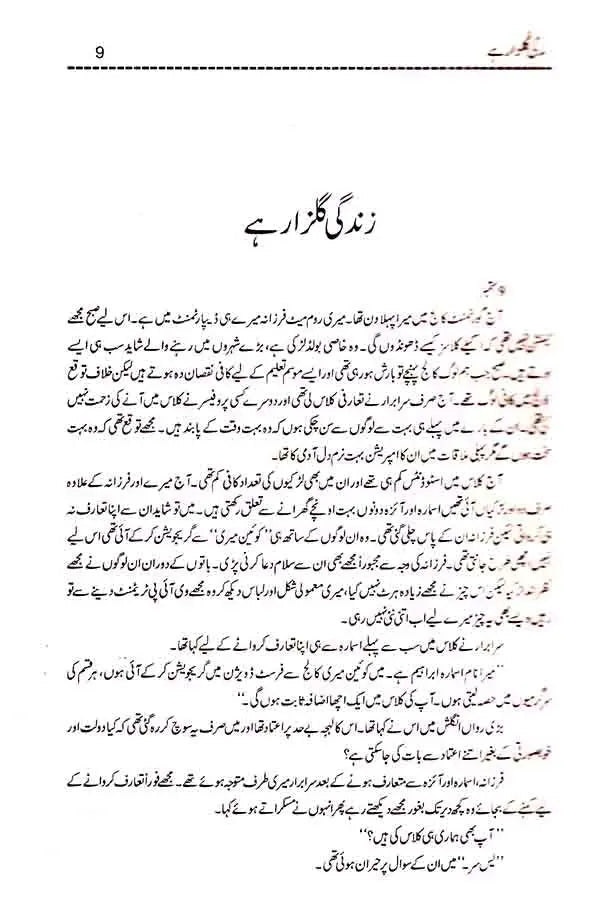 زندگی گلزار ہے
9
زندگی گلزار ہے
9 ستمبر
آج گورنمنٹ کالج میں میرا پہلا دن تھا۔ میری روم میٹ فرزانہ میرے ہی ڈیپارٹمنٹ میں ہے۔ اس لیے صبح مجھے
ٹینشن نہیں تھی کہ اکیلے کلاسز کیسے ڈھونڈوں گی۔ وہ خاصی بولڈ لڑکی ہے، بڑے شہروں میں رہنے والے شاید سب ہی ایسے
ہوتے ہیں۔ صبح جب ہم لوگ کالج پہنچے تو بارش ہو رہی تھی اور ایسے موسم تعلیم کے لیے کافی نقصان دہ ہوتے ہیں لیکن خلاف توقع
کالج میں کافی لوگ تھے۔ آج صرف سر ابرار نے تعارفی کلاس لی تھی اور دوسرے کسی پروفیسر نے کلاس میں آنے کی زحمت نہیں
کی تھی۔ ان کے بارے میں پہلے ہی بہت سے لوگوں سے سن چکی ہوں کہ وہ بہت وقت کے پابند ہیں۔ مجھے توقع تھی کہ وہ بہت
سخت ہوں گے مگر پہلی ملاقات میں ان کا امپریشن بہت نرم دل آدمی کا تھا۔
آج کلاس میں اسٹوڈنٹس کم ہی تھے اور ان میں بھی لڑکیوں کی تعداد کافی کم تھی۔ آج میرے اور فرزانہ کے علاوہ
صرف دو اور لڑکیاں آئی تھیں اسمارہ اور آئزہ دونوں بہت اونچے گھرانے سے تعلق رکھتی ہیں۔ میں تو شاید ان سے اپنا تعارف نہ
ہی کرواتی لیکن فرزانہ ان کے پاس چلی گئی تھی۔ وہ ان لوگوں کے ساتھ ہی ”کوئین میری“ سے گریجویشن کر کے آئی تھی اس لیے
انہیں اچھی طرح جانتی تھی۔ فرزانہ کی وجہ سے مجبوراً مجھے بھی ان سے سلام دعا کرنی پڑی۔ باتوں کے دوران ان لوگوں نے مجھے
نظر انداز کیا لیکن اس چیز نے مجھے زیادہ ہرٹ نہیں کیا، میری معمولی شکل اور لباس دیکھ کر وہ مجھے وی آئی پی ٹریٹمنٹ دینے سے تو
رہیں ویسے بھی یہ چیز میرے لیے اب اتنی نئی نہیں رہی۔
سر ابرار نے کلاس میں سب سے پہلے اسمارہ سے ہی اپنا تعارف کروانے کے لیے کہا تھا۔
”میرا نام اسمارہ ابراہیم ہے۔ میں کوئین میری کالج سے فرسٹ ڈویژن میں گریجویشن کر کے آئی ہوں، ہر قسم کی
سرگرمیوں میں حصہ لیتی ہوں۔ آپ کی کلاس میں ایک اچھا اضافہ ثابت ہوں گی۔“
بڑی رواں انگلش میں اس نے کہا تھا۔ اس کا لہجہ بے حد پر اعتماد تھا اور میں صرف یہ سوچ کر رہ گئی تھی کہ کیا دولت اور
خوبصورتی کے بغیر اتنے اعتماد سے بات کی جا سکتی ہے؟
فرزانہ، اسمارہ اور آئزہ سے متعارف ہونے کے بعد سر ابرار میری طرف متوجہ ہوئے تھے۔ مجھے فوراً تعارف کروانے کے
لیے کہنے کے بجائے وہ کچھ دیر تک بغور مجھے دیکھتے رہے پھر انہوں نے مسکراتے ہوئے کہا۔
”آپ بھی ہماری ہی کلاس کی ہیں؟“
”یس سر۔“ میں ان کے سوال پر حیران ہوئی تھی۔